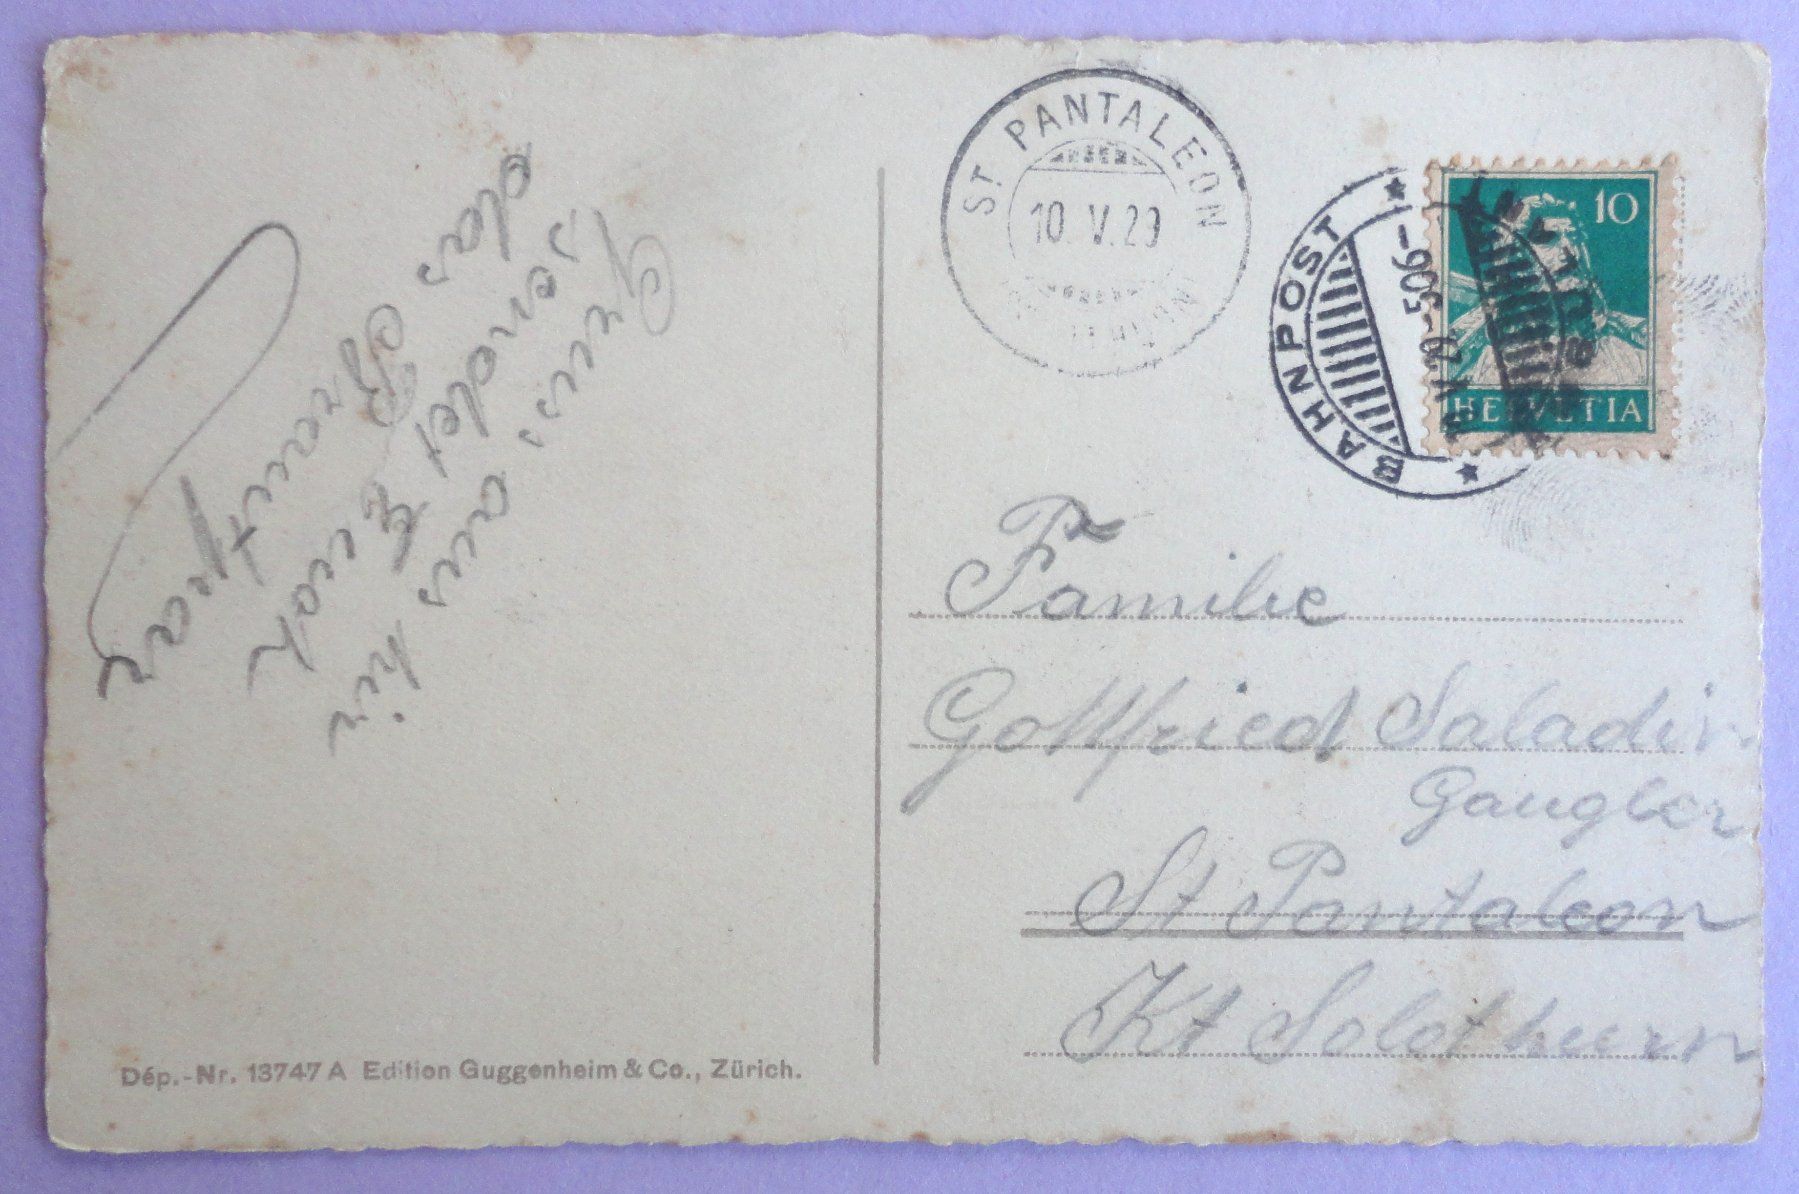 Gruss aus hir
sendet Euch
das Brautpaar
ST. PANTALEON
10. V. 29
BAHNPOST
10
HELVETIA
Familie
Gottfried Saladin
Gaugler
St Pantaleon
Kt Solothurn
Dép.-Nr. 13747 A Edition Guggenheim & Co., Zürich.